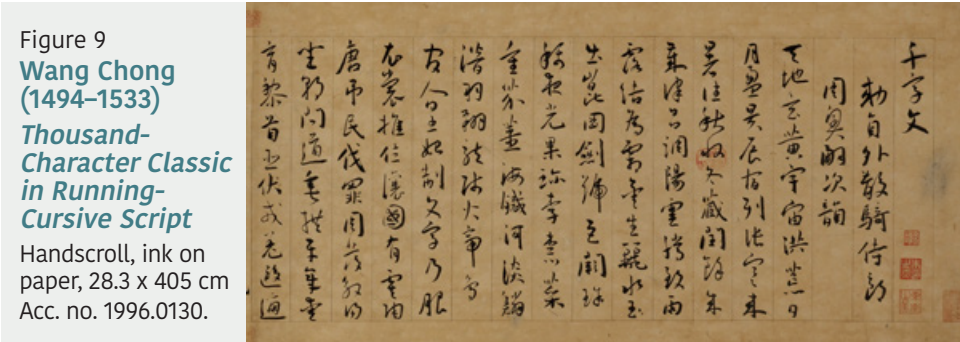 Figure 9
Wang Chong
(1494–1533)
Thousand-
Character Classic
in Running-
Cursive Script
Handscroll, ink on
paper, 28.3 x 405 cm
Acc. no. 1996.0130.
千字文
勅員外散騎侍郎
周興嗣次韻
天地玄黃宇宙洪荒日
月盈昃辰宿列張寒來
暑往秋收冬藏閏餘成
歲律呂調陽雲騰致雨
露結為霜金生麗水玉
出崑岡劍號巨闕珠
稱夜光果珍李柰菜
重芥薑海鹹河淡鱗
潛羽翔龍師火帝鳥
官人皇始制文字乃服
衣裳推位讓國有虞陶
唐弔民伐罪周發殷湯
坐朝問道垂拱平章愛
育黎首臣伏戎羌遐邇